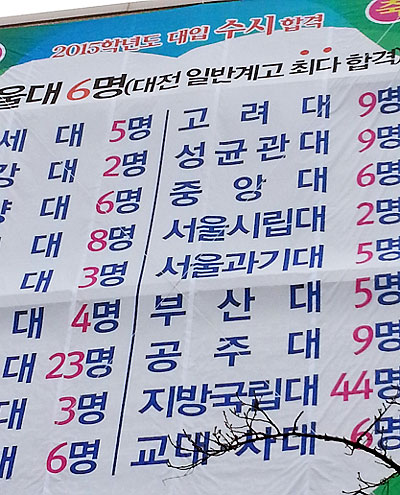 2015학년도 대입 수시 합격
울대 6명(대전 일반계고 최다 합격)
세 대 5명 고 려 대 9명
강 대 2명 성균관대 9명
양 대 6명 중 앙 대 6명
대 8명 서울시립대 2명
대 3명 서울과기대 5명
대 4명 부 산 대 5명
대 23명 공 주 대 9명
대 3명 지방국립대 44명
대 6명 교대·사대 6명